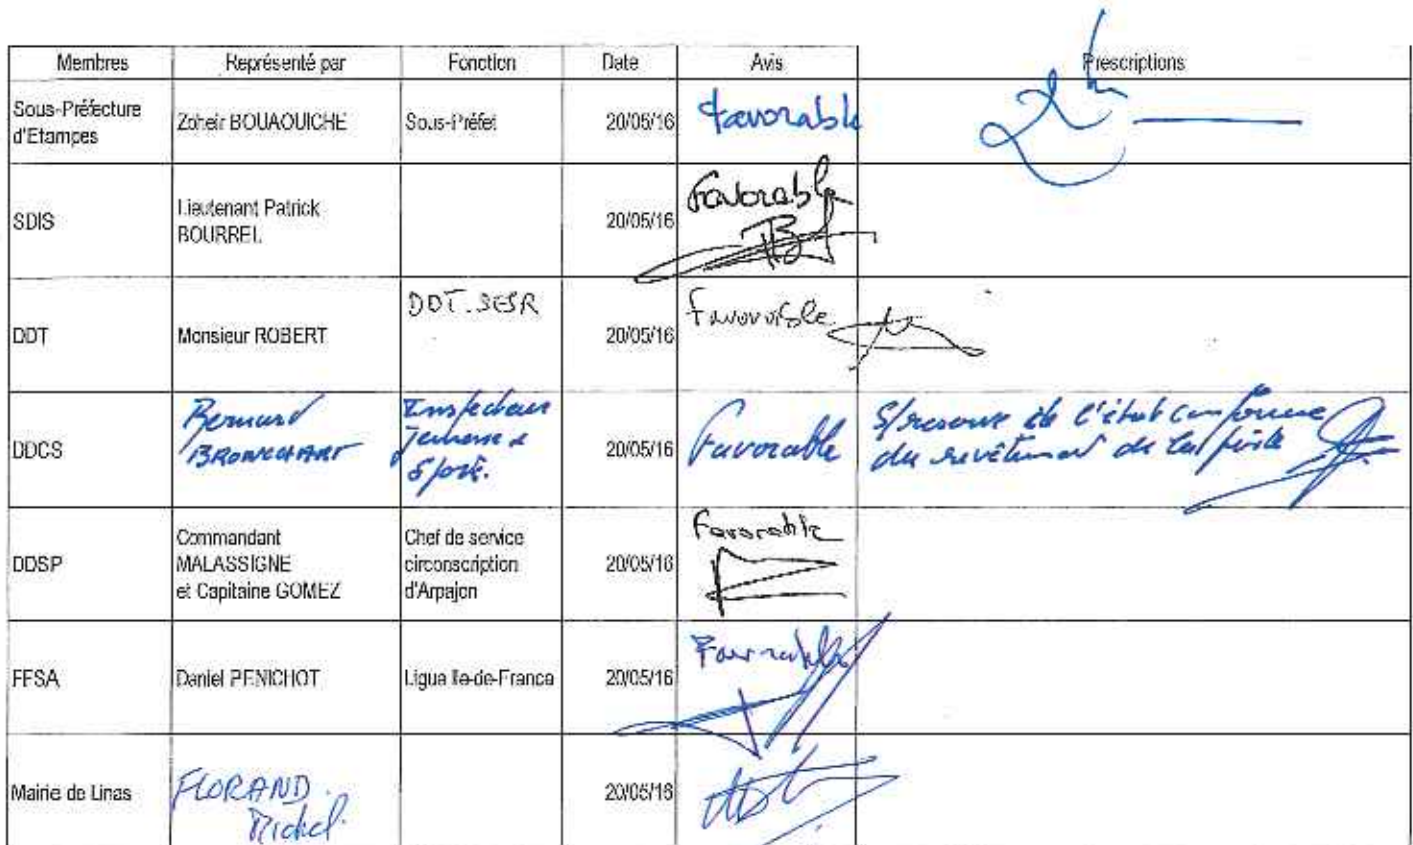 Membres Représenté par Fonction Date Avis Prescriptions
Sous-Préfecture
d'Etampes
Zoheir BOUAOUICHE Sous-Préfet 20/05/16 Favorable
SDIS
Lieutenant Patrick
BOURREL
20/05/16 Favorable
DDT Monsieur ROBERT DDT.SESR 20/05/16 Favorable
DDCS
Bernard
Inspecteur
Jeunesse &
Sport.
20/05/16 Favorable
S/reserve de l'état conforme
du revêtement de la piste
DDSP
Commandant
MALASSIGNE
et Capitaine GOMEZ
Chef de service
circonscription
d'Arpajon
20/05/16 Favorable
FFSA Daniel PENICHOT Ligue Ile-de-France 20/05/16 Favorable
Mairie de Linas
FLORAND.
Michel.
20/05/16